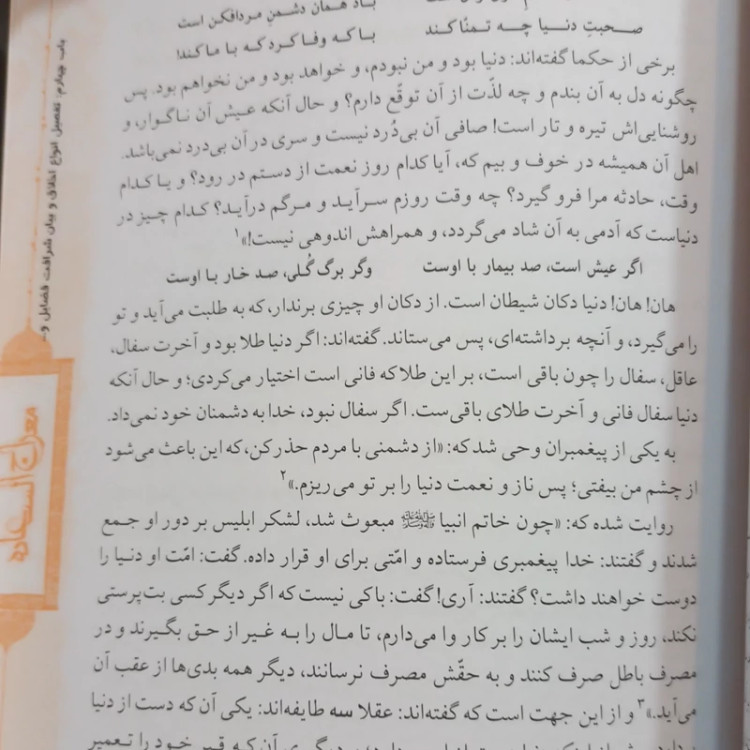 باد همان دشمنِ مردافکن است
صحبتِ دنیا چه تمنّا کند    با که وفا کرد که با ما کند!
برخی از حکما گفته‌اند: دنیا بود و من نبودم، و خواهد بود و من نخواهم بود. پس
چگونه دل به آن بندم و چه لذّت از آن توقّع دارم؟ و حال آنکه عیش آن ناگوار، و
روشنایی‌اش تیره و تار است! صافی آن بی‌دُرد نیست و سری در آن بی‌درد نمی‌باشد.
اهل آن همیشه در خوف و بیم که، آیا کدام روز نعمت از دستم در رود؟ و یا کدام
وقت، حادثه مرا فرو گیرد؟ چه وقت روزم سرآید و مرگم درآید؟ کدام چیز در
دنیاست که آدمی به آن شاد می‌گردد، و همراهش اندوهی نیست!»۱
اگر عیش است، صد بیمار با اوست    وگر برگ گُلی، صد خار با اوست
هان! هان! دنیا دکان شیطان است. از دکان او چیزی برندار، که به طلبت می‌آید و تو
را می‌گیرد، و آنچه برداشته‌ای، پس می‌ستاند. گفته‌اند: اگر دنیا طلا بود و آخرت سفال،
عاقل، سفال را چون باقی است، بر این طلا که فانی است اختیار می‌کردی؛ و حال آنکه
دنیا سفال فانی و آخرت طلای باقی‌ست. اگر سفال نبود، خدا به دشمنان خود نمی‌داد.
به یکی از پیغمبران وحی شد که: «از دشمنی با مردم حذر کن، که این باعث می‌شود
از چشم من بیفتی؛ پس ناز و نعمت دنیا را بر تو می‌ریزم.»۲
روایت شده که: «چون خاتم انبیا ﷺ مبعوث شد، لشکر ابلیس بر دور او جمع
شدند و گفتند: خدا پیغمبری فرستاده و امّتی برای او قرار داده. گفت: امّت او دنیا را
دوست خواهند داشت؟ گفتند: آری! گفت: باکی نیست که اگر دیگر کسی بت‌پرستی
نکند، روز و شب ایشان را بر کار وا می‌دارم، تا مال را به غیر از حق بگیرند و در
مصرف باطل صرف کنند و به حقّش مصرف نرسانند، دیگر همه بدی‌ها از عقب آن
می‌آید.»۳ و از این جهت است که گفته‌اند: عقلا سه طایفه‌اند: یکی آن که دست از دنیا
باب چهارم: تفصیل انواع اخلاق و بیان شرافت فضایل و...
معراج السعاده